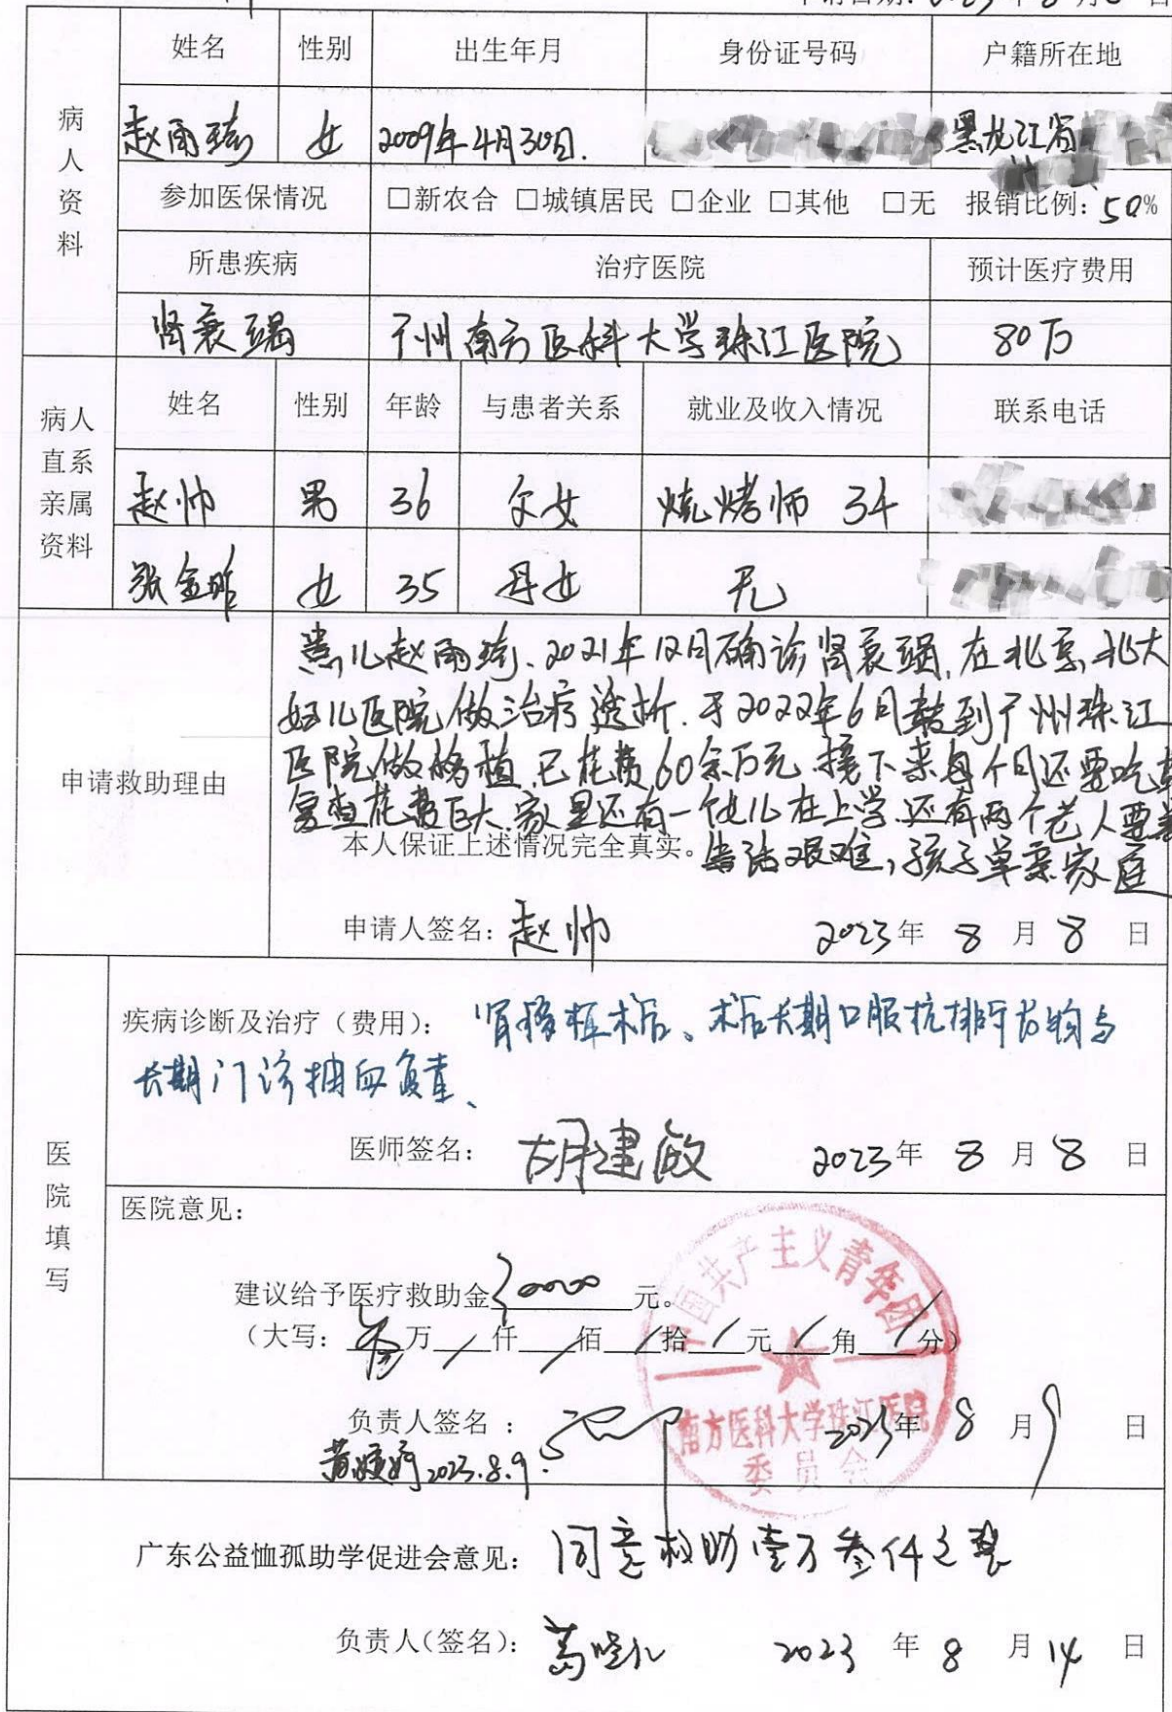 申请日期：2023年8月8日
姓名 性别 出生年月 身份证号码 户籍所在地
病人资料
赵雨 女 2009年4月30日. 黑龙江省
参加医保情况 □新农合 □城镇居民 □企业 □其他 □无 报销比例：50%
所患疾病 治疗医院 预计医疗费用
肾衰竭 广州南方医科大学珠江医院 80万
病人直系亲属资料
姓名 性别 年龄 与患者关系 就业及收入情况 联系电话
赵帅 男 36 父女 烧烤师 34
张金 女 35 母女 无
申请救助理由
患儿赵雨 、2021年12月确诊肾衰竭, 在北京, 北大
妇儿医院做治疗透析. 于2022年6月转到广州珠江
医院做移植, 已花费60余万元, 接下来每个月还要吃药
复查花费巨大, 家里还有一 儿在上学, 还有两个老人要养
本人保证上述情况完全真实。 生活艰难, 孩子单亲家庭
申请人签名：赵帅 2023年8月8日
医院填写
疾病诊断及治疗（费用）： 肾移植术后、术后长期口服抗排斥药物与
长期门诊抽血复查、
医师签名： 胡建敏 2023年8月8日
医院意见：
建议给予医疗救助金30000元。
（大写：叁万/仟/佰/拾/元/角/分）
中国共产主义青年团
南方医科大学珠江医院
委员会
负责人签名： 2023年8月9日
黄 2023.8.9.
广东公益恤孤助学促进会意见： 同意救助壹万叁仟元整
负责人（签名）： 2023年8月14日